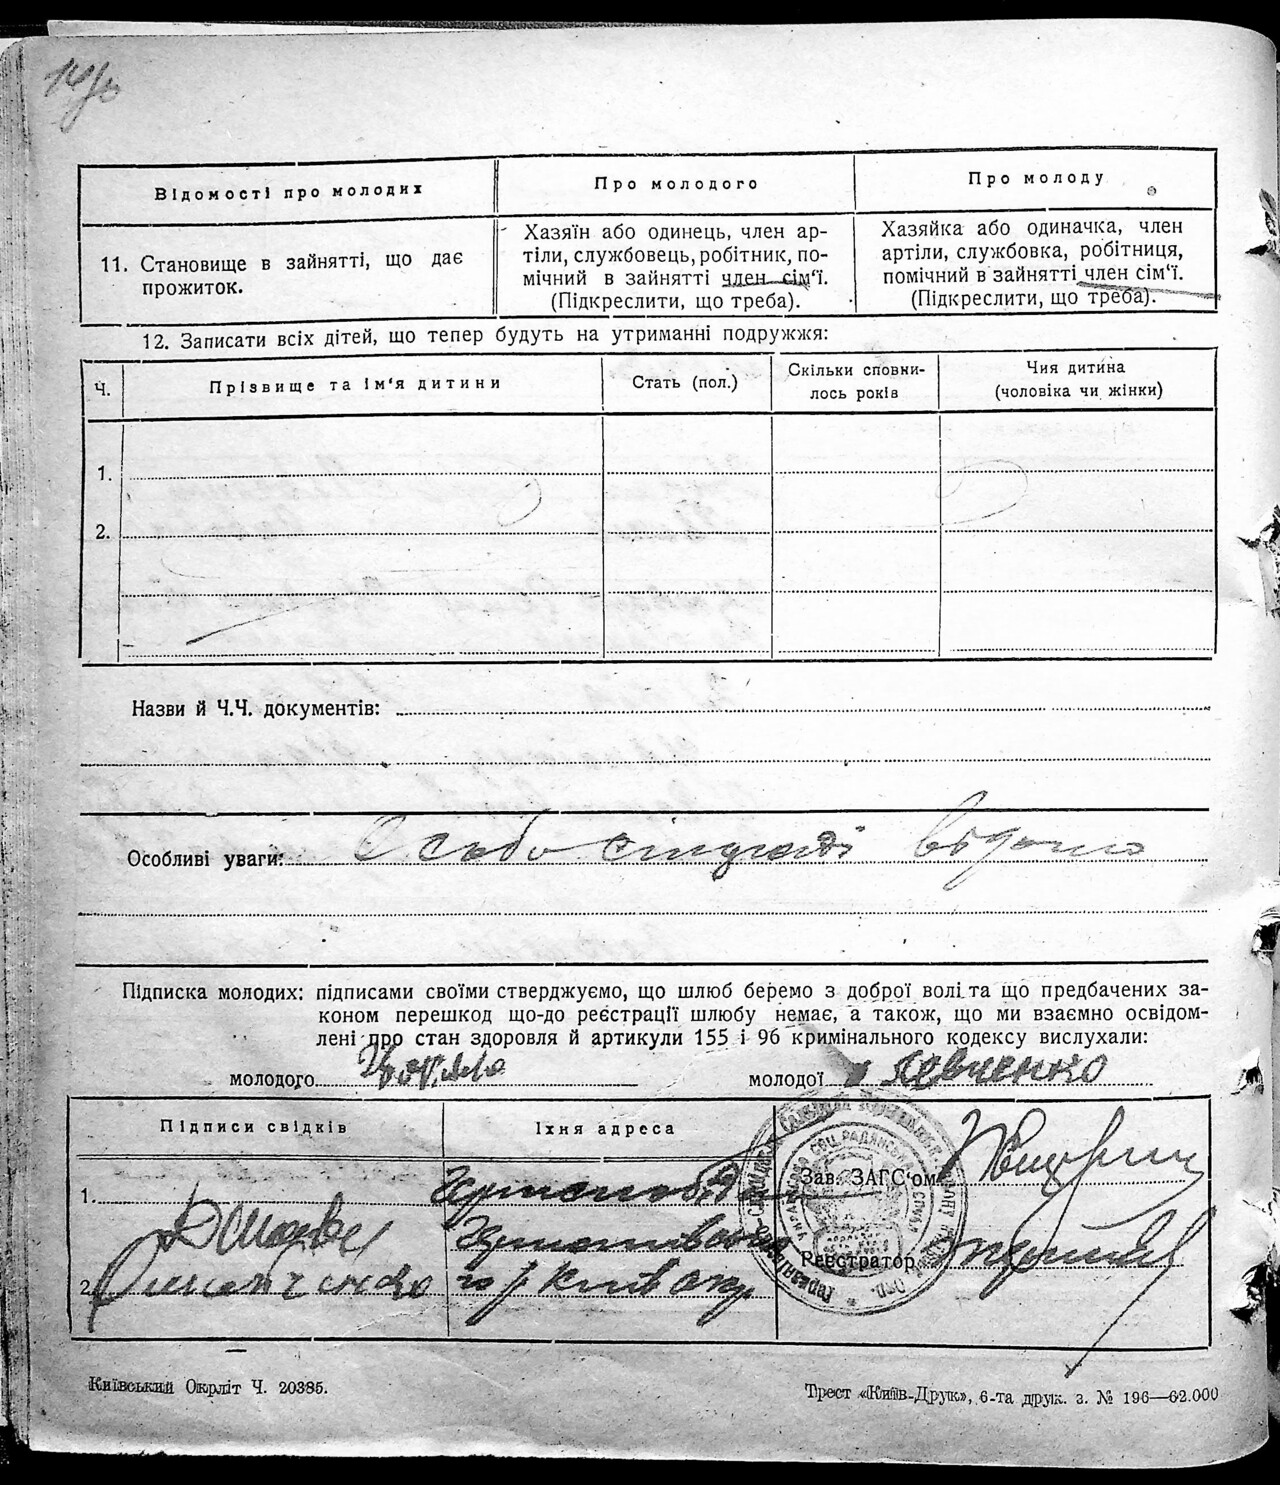 14/
Відомості про молодих
Про молодого
Про молоду
11. Становище в зайнятті, що дає
прожиток.
Хазяїн або одинець, член ар-
тіли, службовець, робітник, по-
мічний в зайнятті член сім'ї.
(Підкреслити, що треба).
Хазяйка або одиначка, член
артіли, службовка, робітниця,
помічний в зайнятті член сім'ї.
(Підкреслити, що треба).
12. Записати всіх дітей, що тепер будуть на утриманні подружжя:
Ч.
Прізвище та ім'я дитини
Стать (пол.)
Скільки сповни-
лось років
Чия дитина
(чоловіка чи жінки)
1.
2.
Назви й Ч.Ч. документів:
Особливі уваги: Особо відомо
Підписка молодих: підписами своїми стверджуємо, що шлюб беремо з доброї волі та що предбачених за-
коном перешкод що-до реєстрації шлюбу немає, а також, що ми взаємно освідом-
лені про стан здоровля й артикули 155 і 96 кримінального кодексу вислухали:
молодого
молодої Левченко
Підписи свідків
Їхня адреса
1.
2.
Зав. ЗАГС'ом
Реєстратор
Київський Окрліт Ч. 20385.
Трест «Київ-Друк», 6-та друк. з. № 196—62.000